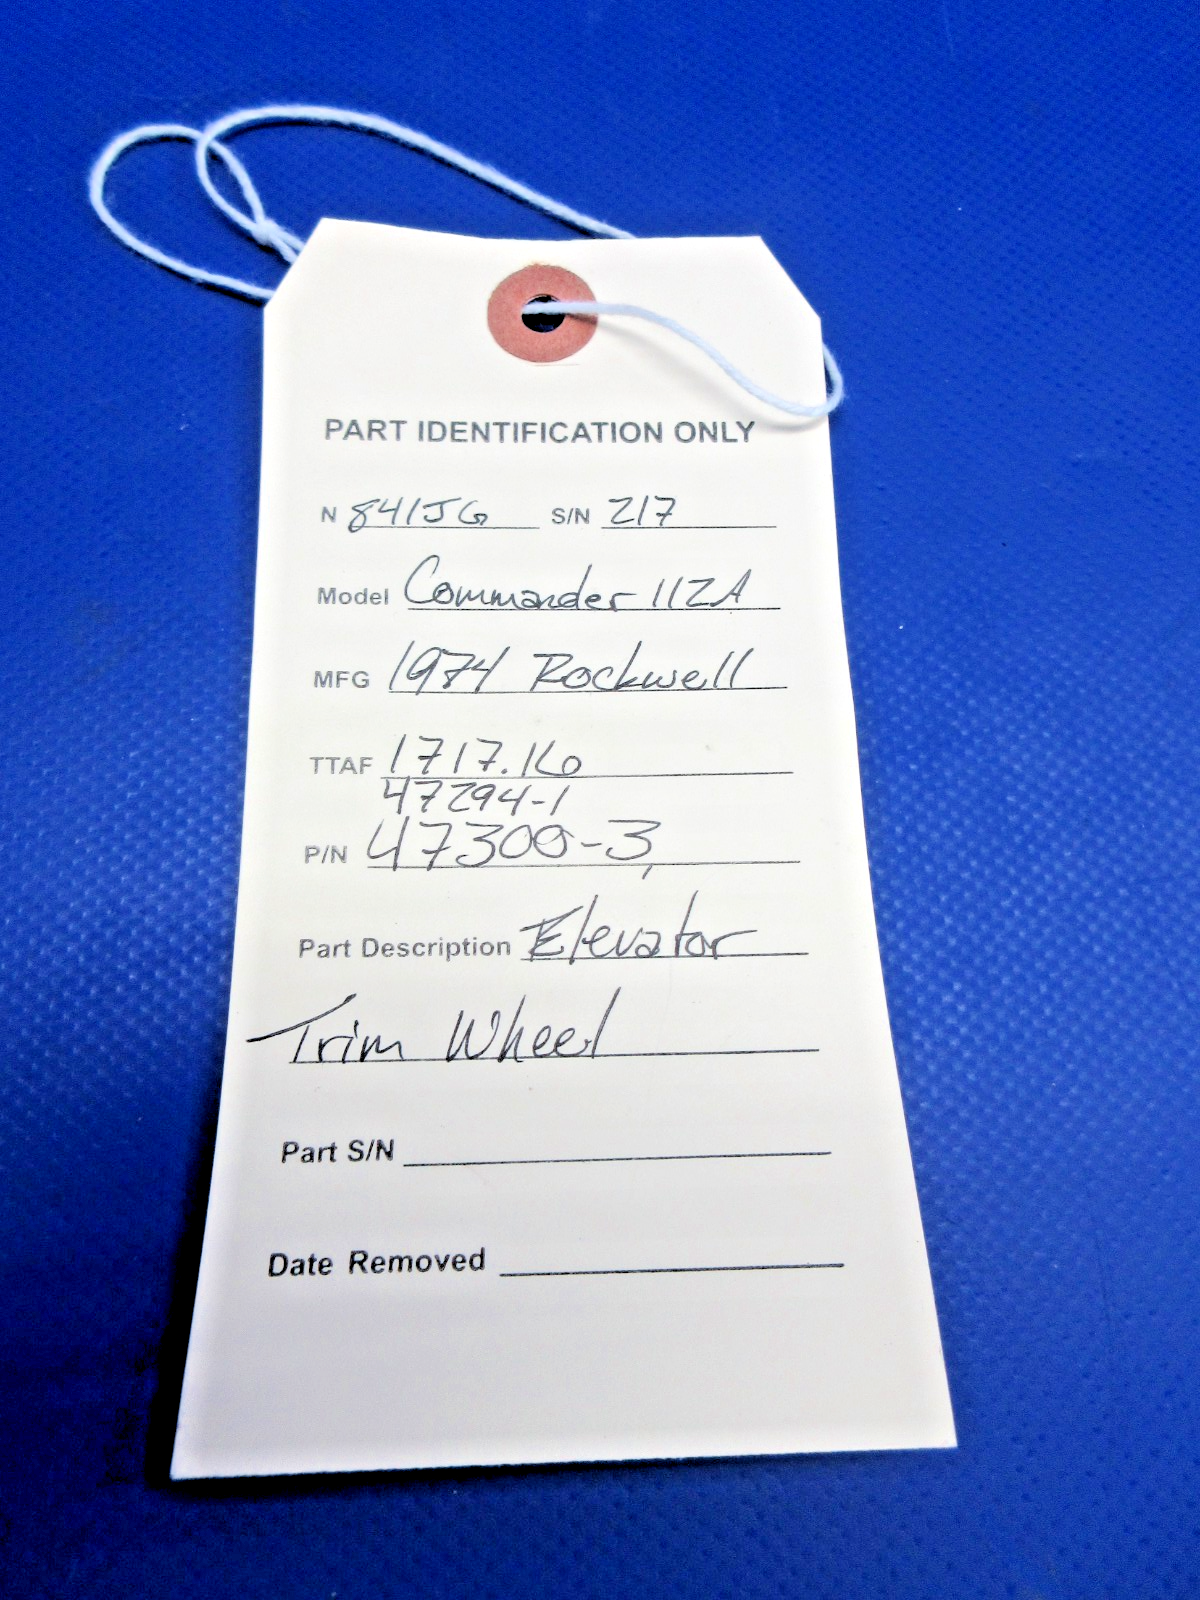 PART IDENTIFICATION ONLY
N 841JG S/N 217
Model Commander 112A
MFG 1974 Rockwell
TTAF 1717.16
47294-1
P/N 47300-3,
Part Description Elevator
Trim Wheel
Part S/N
Date Removed